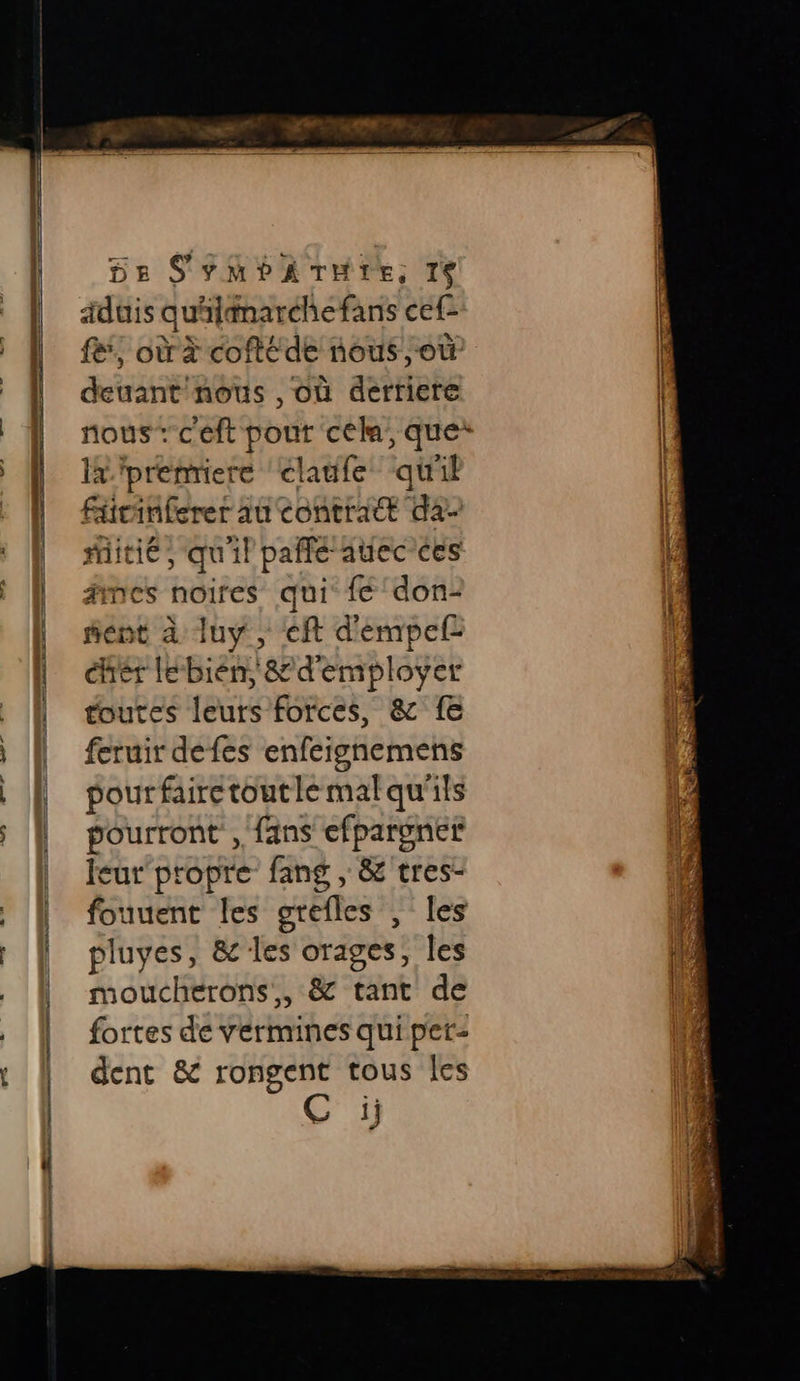 DE SYMPATHIE, 15
aduis qu'il marche sans ces-
se, où à costé de nous, où
deuant nous, où derriere
nous: c'est pour cela, que
la premiere clause qu'il
fait inserer au contract d'a-
mitié, qu'il passe auec ces
ames noires qui se don-
nent à luy, est d'empes-
cher le bien, & d'employer
toutes leurs forces, & se
seruir de ses enseignemens
pour faire tout le mal qu'ils
pourront, sans espargner
leur propre sang, & tres-
souuent les gresles, les
pluyes, & les orages, les
moucherons, & tant de
sortes de vermines qui per-
dent & rongent tous les
C ij